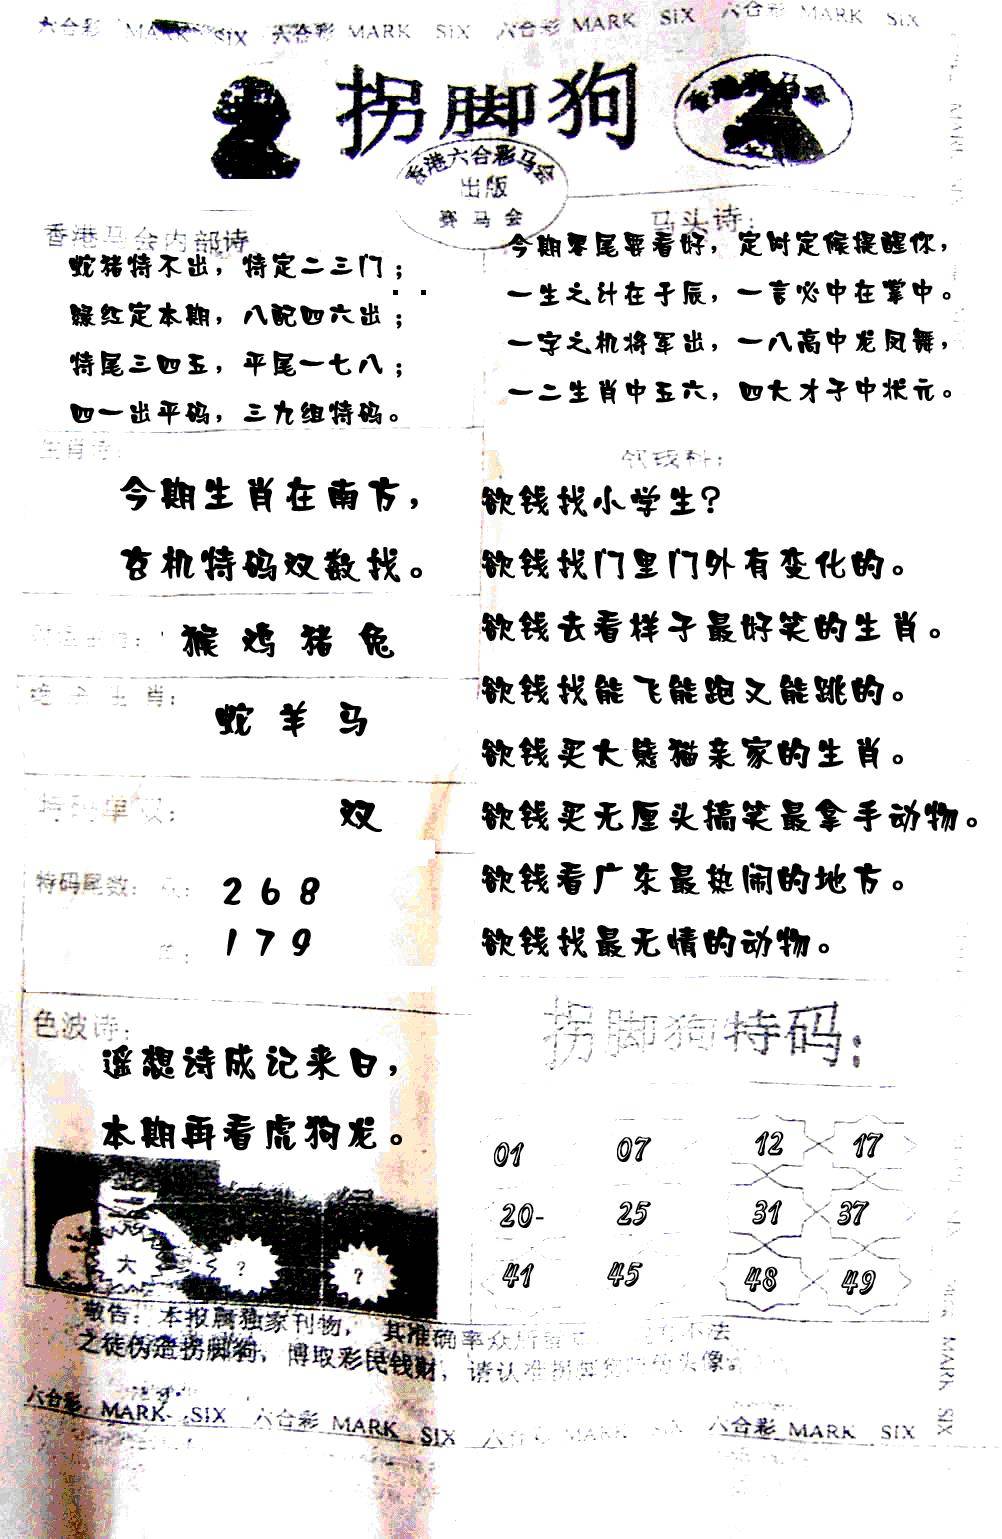 六合彩 MARK SIX 六合彩 MARK SIX 六合彩 MARK SIX 六合彩 MARK SIX
拐脚狗
香港六合彩马会
出版
赛马会
香港马会内部诗
蛇猪特不出，特定二三门；
绿红定本期，八配四六出；
特尾三四五，平尾一七八；
四一出平码，三九组特码。
马头诗：
今期零尾要看好，定时定候提醒你，
一生之计在于辰，一言必中在掌中。
一字之机将军出，一八高中龙凤舞，
一二生肖中五六，四大才子中状元。
生肖诗：
今期生肖在南方，
玄机特码双数找。
猴 鸡 猪 兔
绝 杀 生 肖：
蛇 羊 马
特码单双：
双
特码尾数：
2 6 8
1 7 9
色波诗：
遥想诗成记来日，
本期再看虎狗龙。
大 ? ?
欲钱料：
欲钱找小学生?
欲钱找门里门外有变化的。
欲钱去看样子最好笑的生肖。
欲钱找能飞能跑又能跳的。
欲钱买大熊猫亲家的生肖。
欲钱买无厘头搞笑最拿手动物。
欲钱看广东最热闹的地方。
欲钱找最无情的动物。
拐脚狗特码：
01 07 12 17
20- 25 31 37
41 45 48 49
敬告：本报属独家刊物，其准确率众所 不法
之徒伪造拐脚狗，博取彩民钱财，请认准拐脚狗 头像
六合彩 MARK SIX 六合彩 MARK SIX 六合彩 MARK SIX 六合彩 MARK SIX
MARK SIX